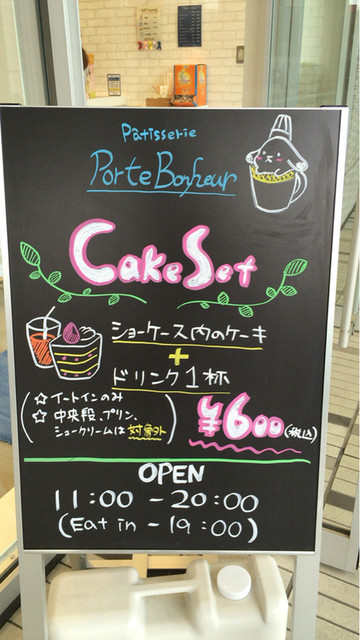 Patisserie
Porte Bonheur
Cake Set
ショーケース内のケーキ
+
ドリンク1杯
☆ イートインのみ
☆ 中央段、プリン、
シュークリームは対象外
¥600(税込)
OPEN
11:00 - 20:00
(Eat in - 19:00)